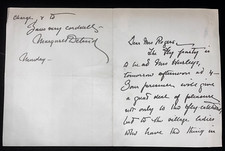 change & to
Yours very cordially
Margaret Deland
Monday.
Dear Mrs Rogers.
The Fly party is
at Mrs
tomorrow afternoon at 4
Your presence will give
a great deal of pleasure
not only to the fly-catchers
but to the village ladies
who have the thing in